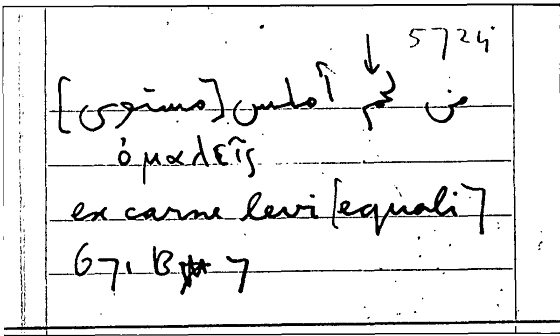 5724
من لحم أملس [مستوى]
ὁμαλεῖς
ex carne levi [equali]
67, B 7